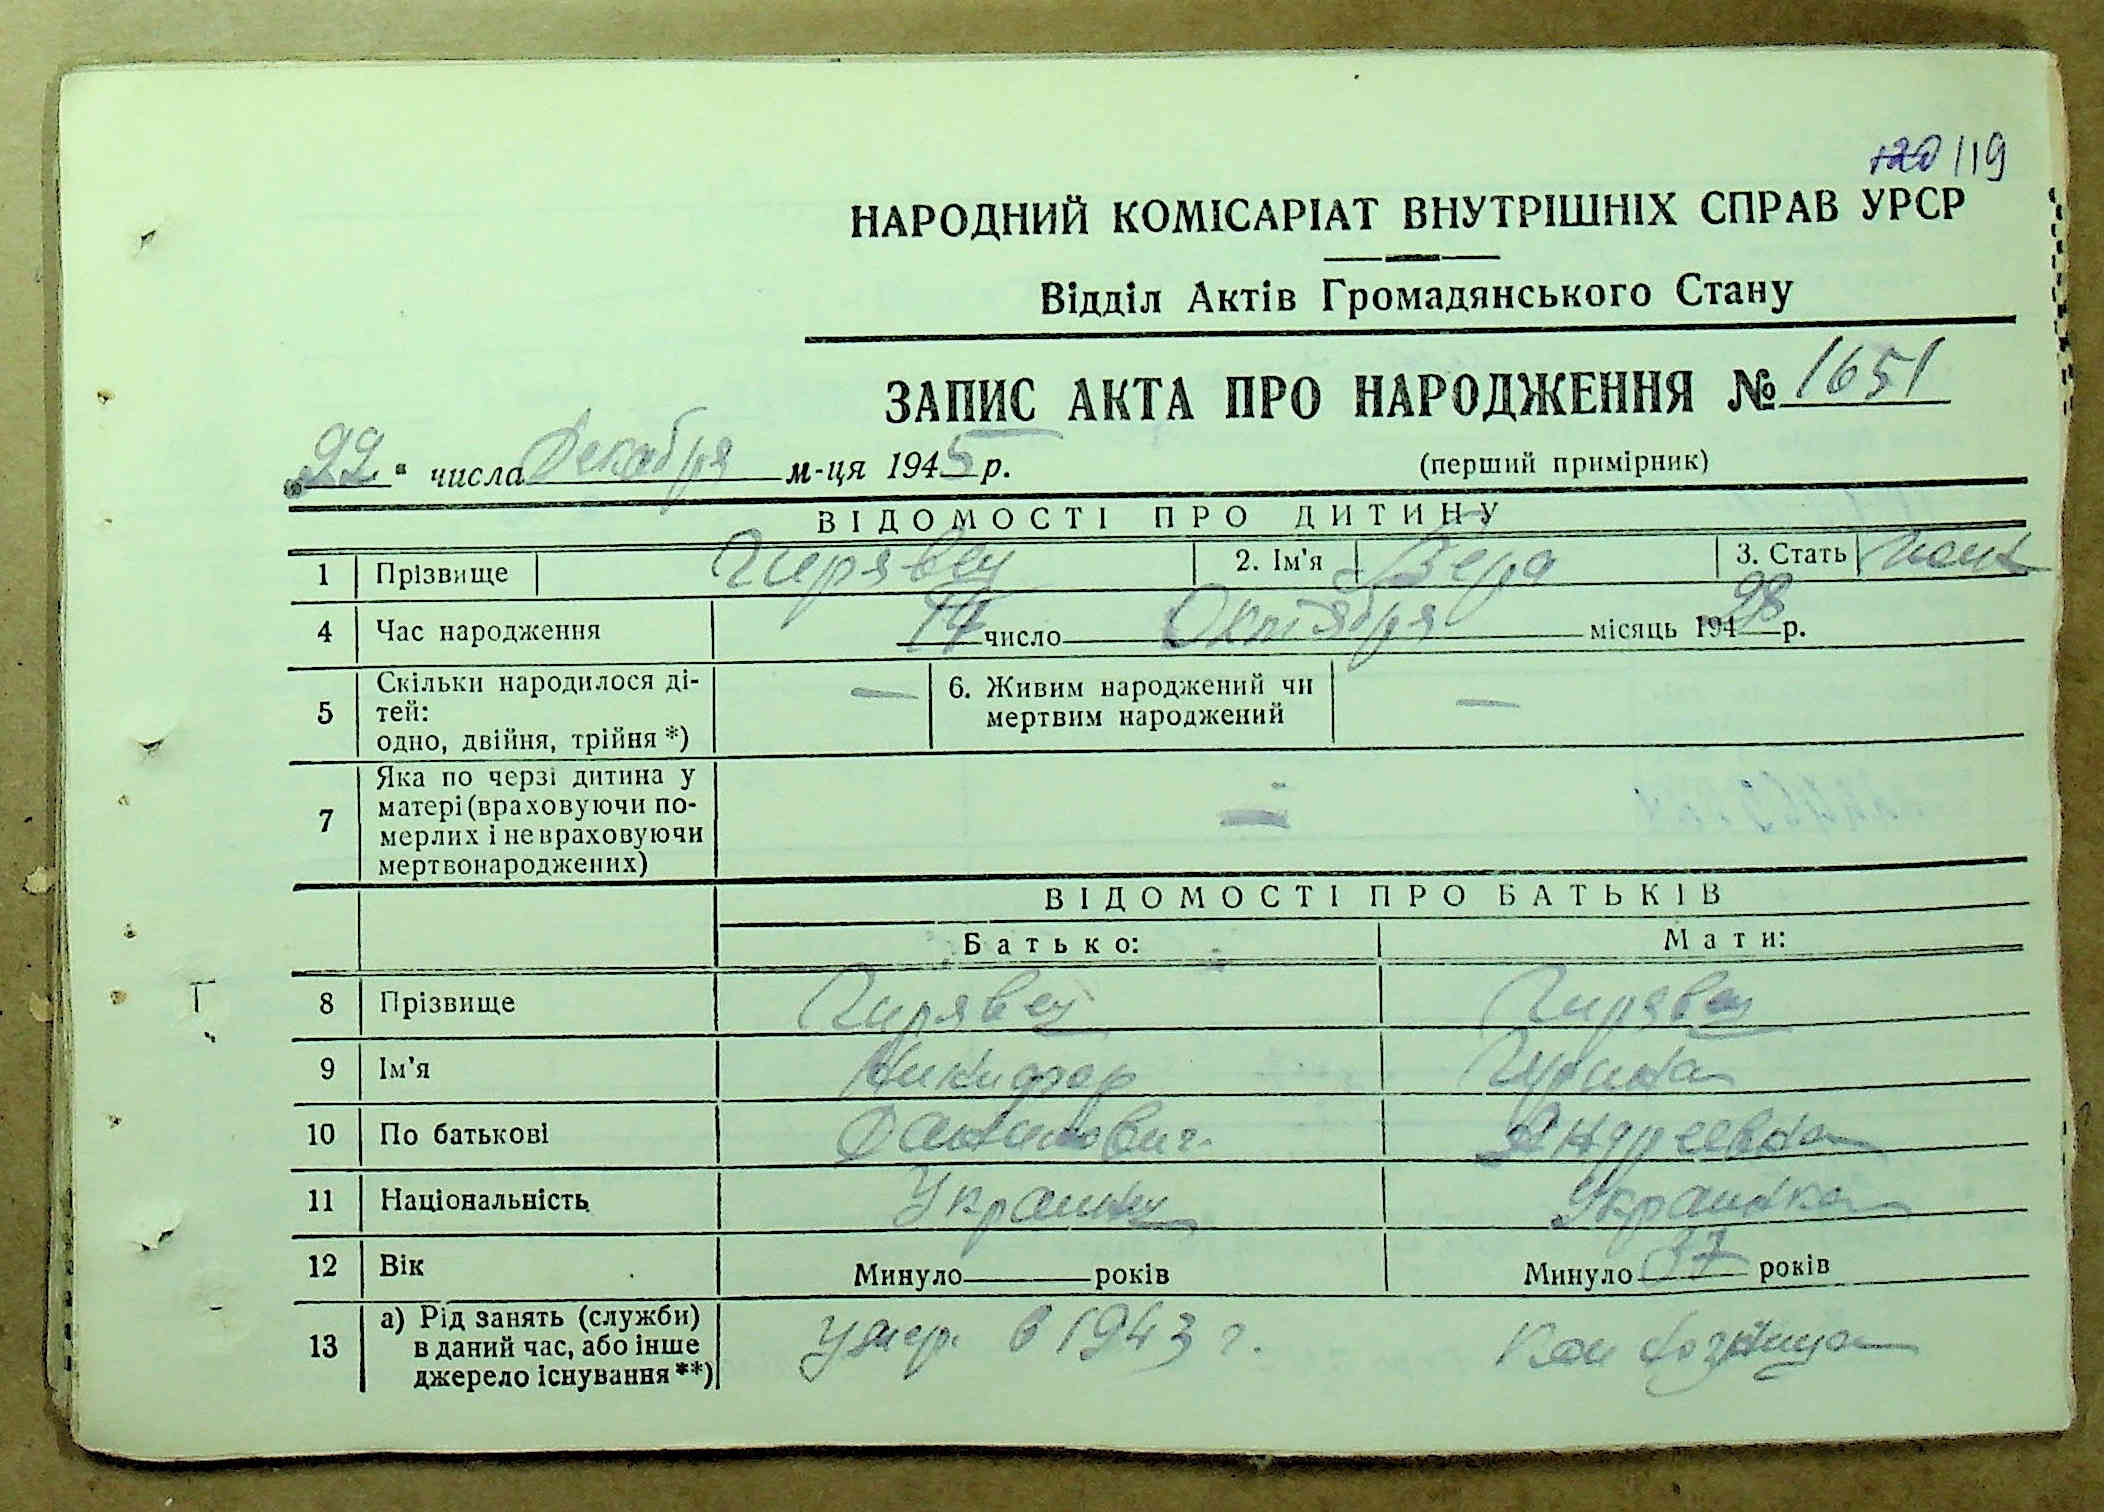 120 119
НАРОДНИЙ КОМІСАРІАТ ВНУТРІШНІХ СПРАВ УРСР
Відділ Актів Громадянського Стану
ЗАПИС АКТА ПРО НАРОДЖЕННЯ № 1651
„22“ числа Декабря м-ця 1945 р.
(перший примірник)
ВІДОМОСТІ ПРО ДИТИНУ
1 Прізвище Гирявец 2. Ім'я Вера 3. Стать
4 Час народження число Октября місяць 194 28 р.
5 Скільки народилося ді-
тей:
одно, двійня, трійня *) —
6. Живим народжений чи
мертвим народжений —
7 Яка по черзі дитина у
матері (враховуючи по-
мерлих і не враховуючи
мертвонароджених) —
ВІДОМОСТІ ПРО БАТЬКІВ
Батько: Мати:
8 Прізвище Гирявец Гирявец
9 Ім'я Никифор Ирина
10 По батькові Данилович Андреевна
11 Національність Украинец Украинка
12 Вік Минуло років Минуло 37 років
13 а) Рід занять (служби)
в даний час, або інше
джерело існування **) умер. в 1943 г. Колхозница
Г